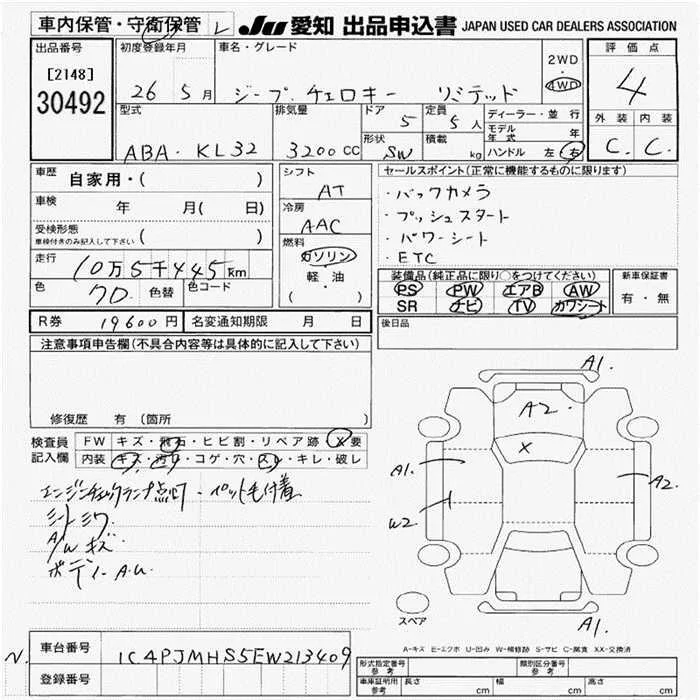 車内保管・守衛保管 JU 愛知 出品申込書 JAPAN USED CAR DEALERS ASSOCIATION
出品番号 初度登録年月 車名・グレード 評価点
[2148] 2WD
30492 26 5月 ジープ チェロキー リミテッド 4WD 4
型式 排気量 ドア 5 定員 5人 ディーラー・並行 外装 内装
モデル年式 年
ABA・KL32 3200CC 形状 SW 積載 kg ハンドル 左 右 C. C.
車歴 自家用・( ) シフト AT セールスポイント(正常に機能するものに限ります)
・バックカメラ
車検 年 月( 日) 冷房 AAC ・プッシュスタート
受検形態 ・パワーシート
車検付きのみ記入して下さい ( ) 燃料 ガソリン ・ETC
走行 10万5千445km 軽・油 装備品(純正品に限り○をつけてください) 新車保証書
色 70 色替 色コード ( ・ ) PS PW エアB AW 有・無
SR ナビ TV カワシート
R券 19600円 名変通知期限 月 日 後日品
注意事項申告欄(不具合内容等は具体的に記入して下さい)
A1.
A2.
修復歴 有 (箇所 )
検査員 FW キズ・飛石・ヒビ割・リペア跡 X要 X
記入欄 内装 キズ・汚れ・コゲ・穴・スレ・キレ・破レ
A1. A2.
エンジンチェックランプ点灯・ペット毛付着
シートシワ W2
A/Wキズ
ボディーA.U.
スペア A1.
A-キズ E-エクボ U-凹み W-補修跡 S-サビ C-腐食 XX-交換済
N. 車台番号 1C4PJMHS5EW213409
登録番号 形式指定番号 参考 類別区分番号 参考
車庫証明用 参考 長さ cm 幅 cm 高さ cm